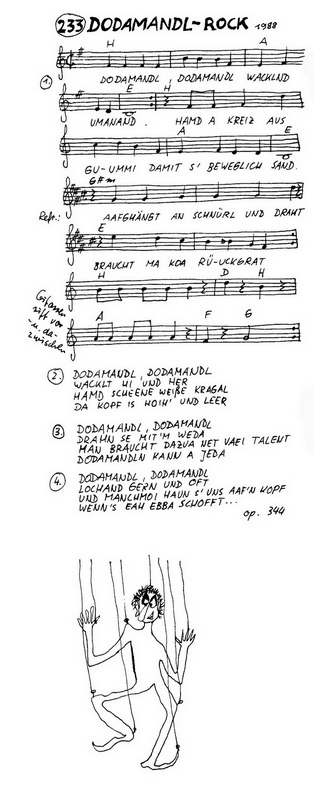 233 DODAMANDL-ROCK 1988
H A
1. DODAMANDL, DODAMANDL WACKLND
E H
UMANAND. HAMD A KREIZ AUS
A E
GU-UMMI DAMIT S' BEWEGLICH SAND.
G#m
Refr.: AAFGHÄNGT AN SCHNÜRL UND DRAHT
E
BRAUCHT MA KOA RÜ-UCKGRAT
H D H
A F G
riff vor
u. da-
zwischen
2. DODAMANDL, DODAMANDL
WACKLT HI UND HER
HAMD SCHEENE WEIßE KRAGAL
DA KOPF IS HOIH' UND LEER
3. DODAMANDL, DODAMANDL
DRAHN SE MIT'M WEDA
MAN BRAUCHT DAZUA NET VAFI TALENT
DODAMANDLN KANN A JEDA
4. DODAMANDL, DODAMANDL
LOCHAND GERN UND OFT
UND MANCHMOI HAUN S' UNS AAF'N KOPF
WENN'S EAH EBBA SCHOFFT...
op. 344